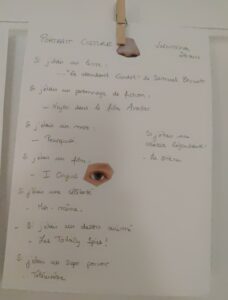 PORTRAIT CULTUREL
Si j'étais un livre :
- "Le de Samuel Beckett
Si j'étais un personnage de fiction :
- dans le film Avatar
Si j'étais un mot :
- Pourquoi
Si j'étais un film :
- I Origins
Si j'étais une célébrité
- Moi-même.
Si j'étais un dessin animé
- Les Totally Spies!
Si j'étais un super pouvoir
-
Si j'étais une
- La sirène